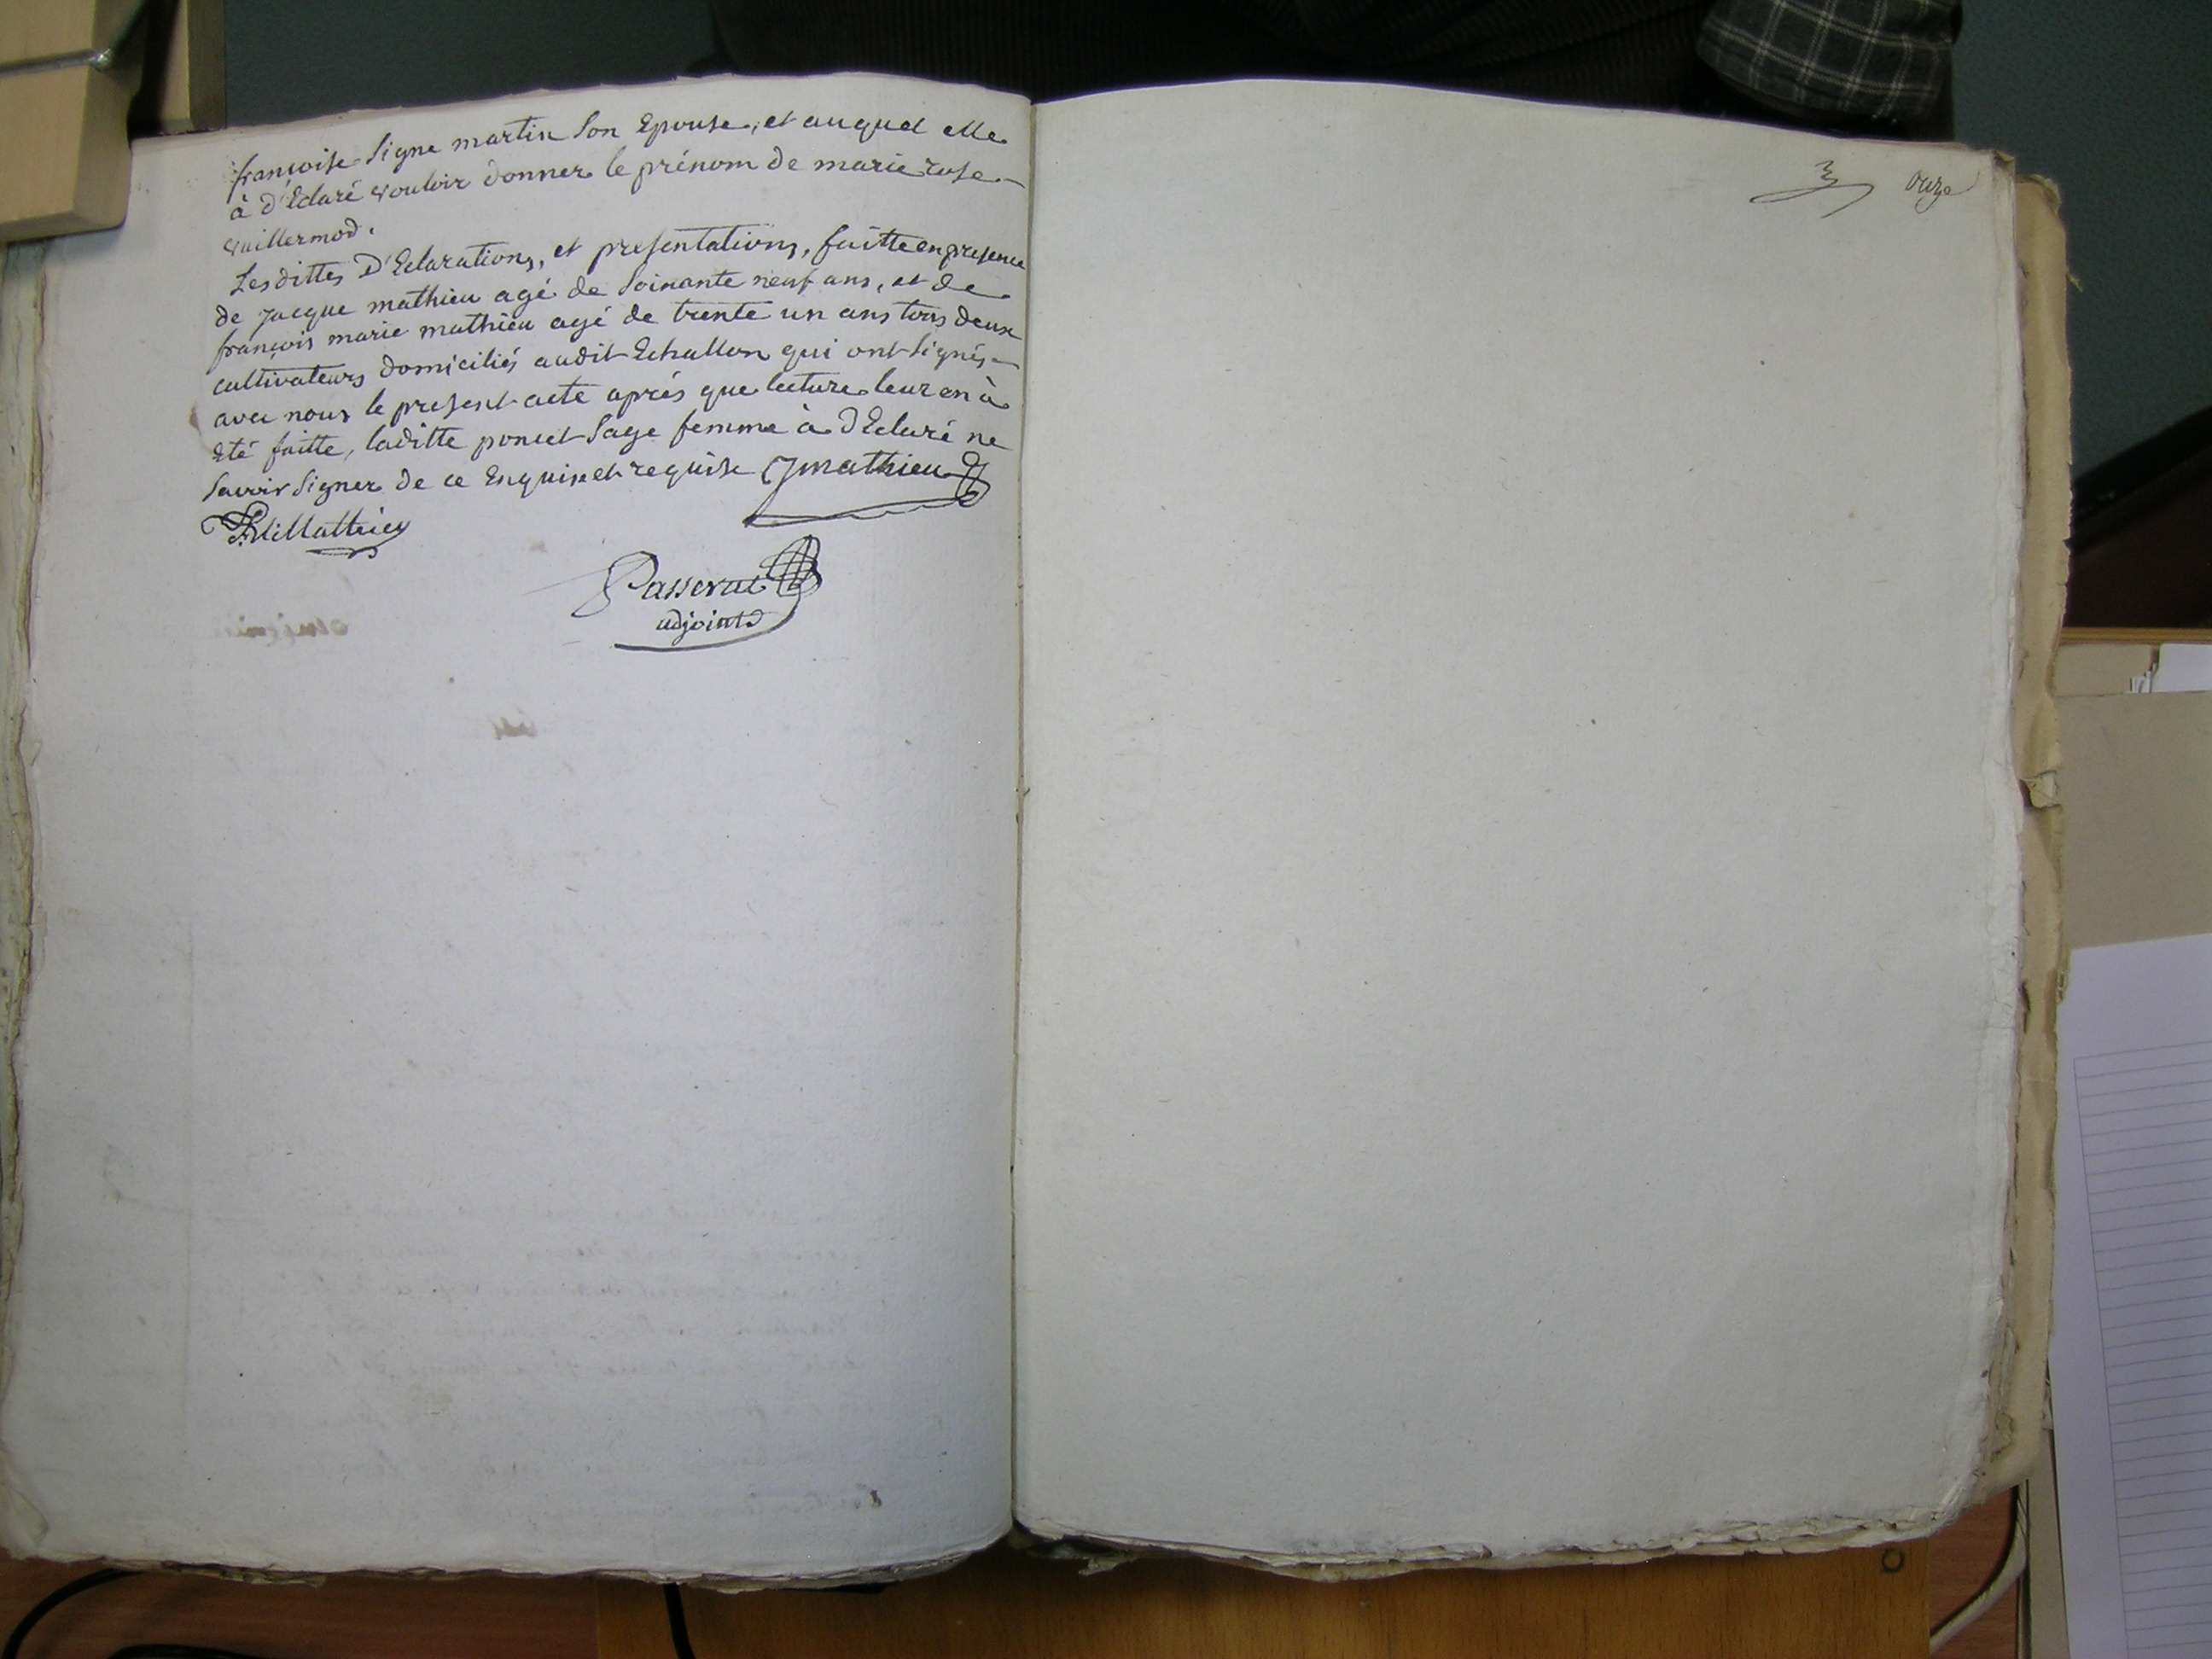 françoise Signe martin Son Epouse, et auquel elle
à d'Eclaré vouloir donner le prénom de marie rose
vuillermod.
Lesdittes D'Eclarations, et presentations, faitte en presence
de jacque mathieu agé de Soixante neuf ans, et de
françois marie mathieu agé de trente un ans tous deux
cultivateurs domiciliés audit Echallon qui ont Signés
avec nous le present acte aprés que lecture leur en à
Eté faitte, laditte poncet Sage femme à d'Eclaré ne
Savoir Signer de ce Enquise et requise Jmathieu
Mathieu
Passerat
adjoint
onze